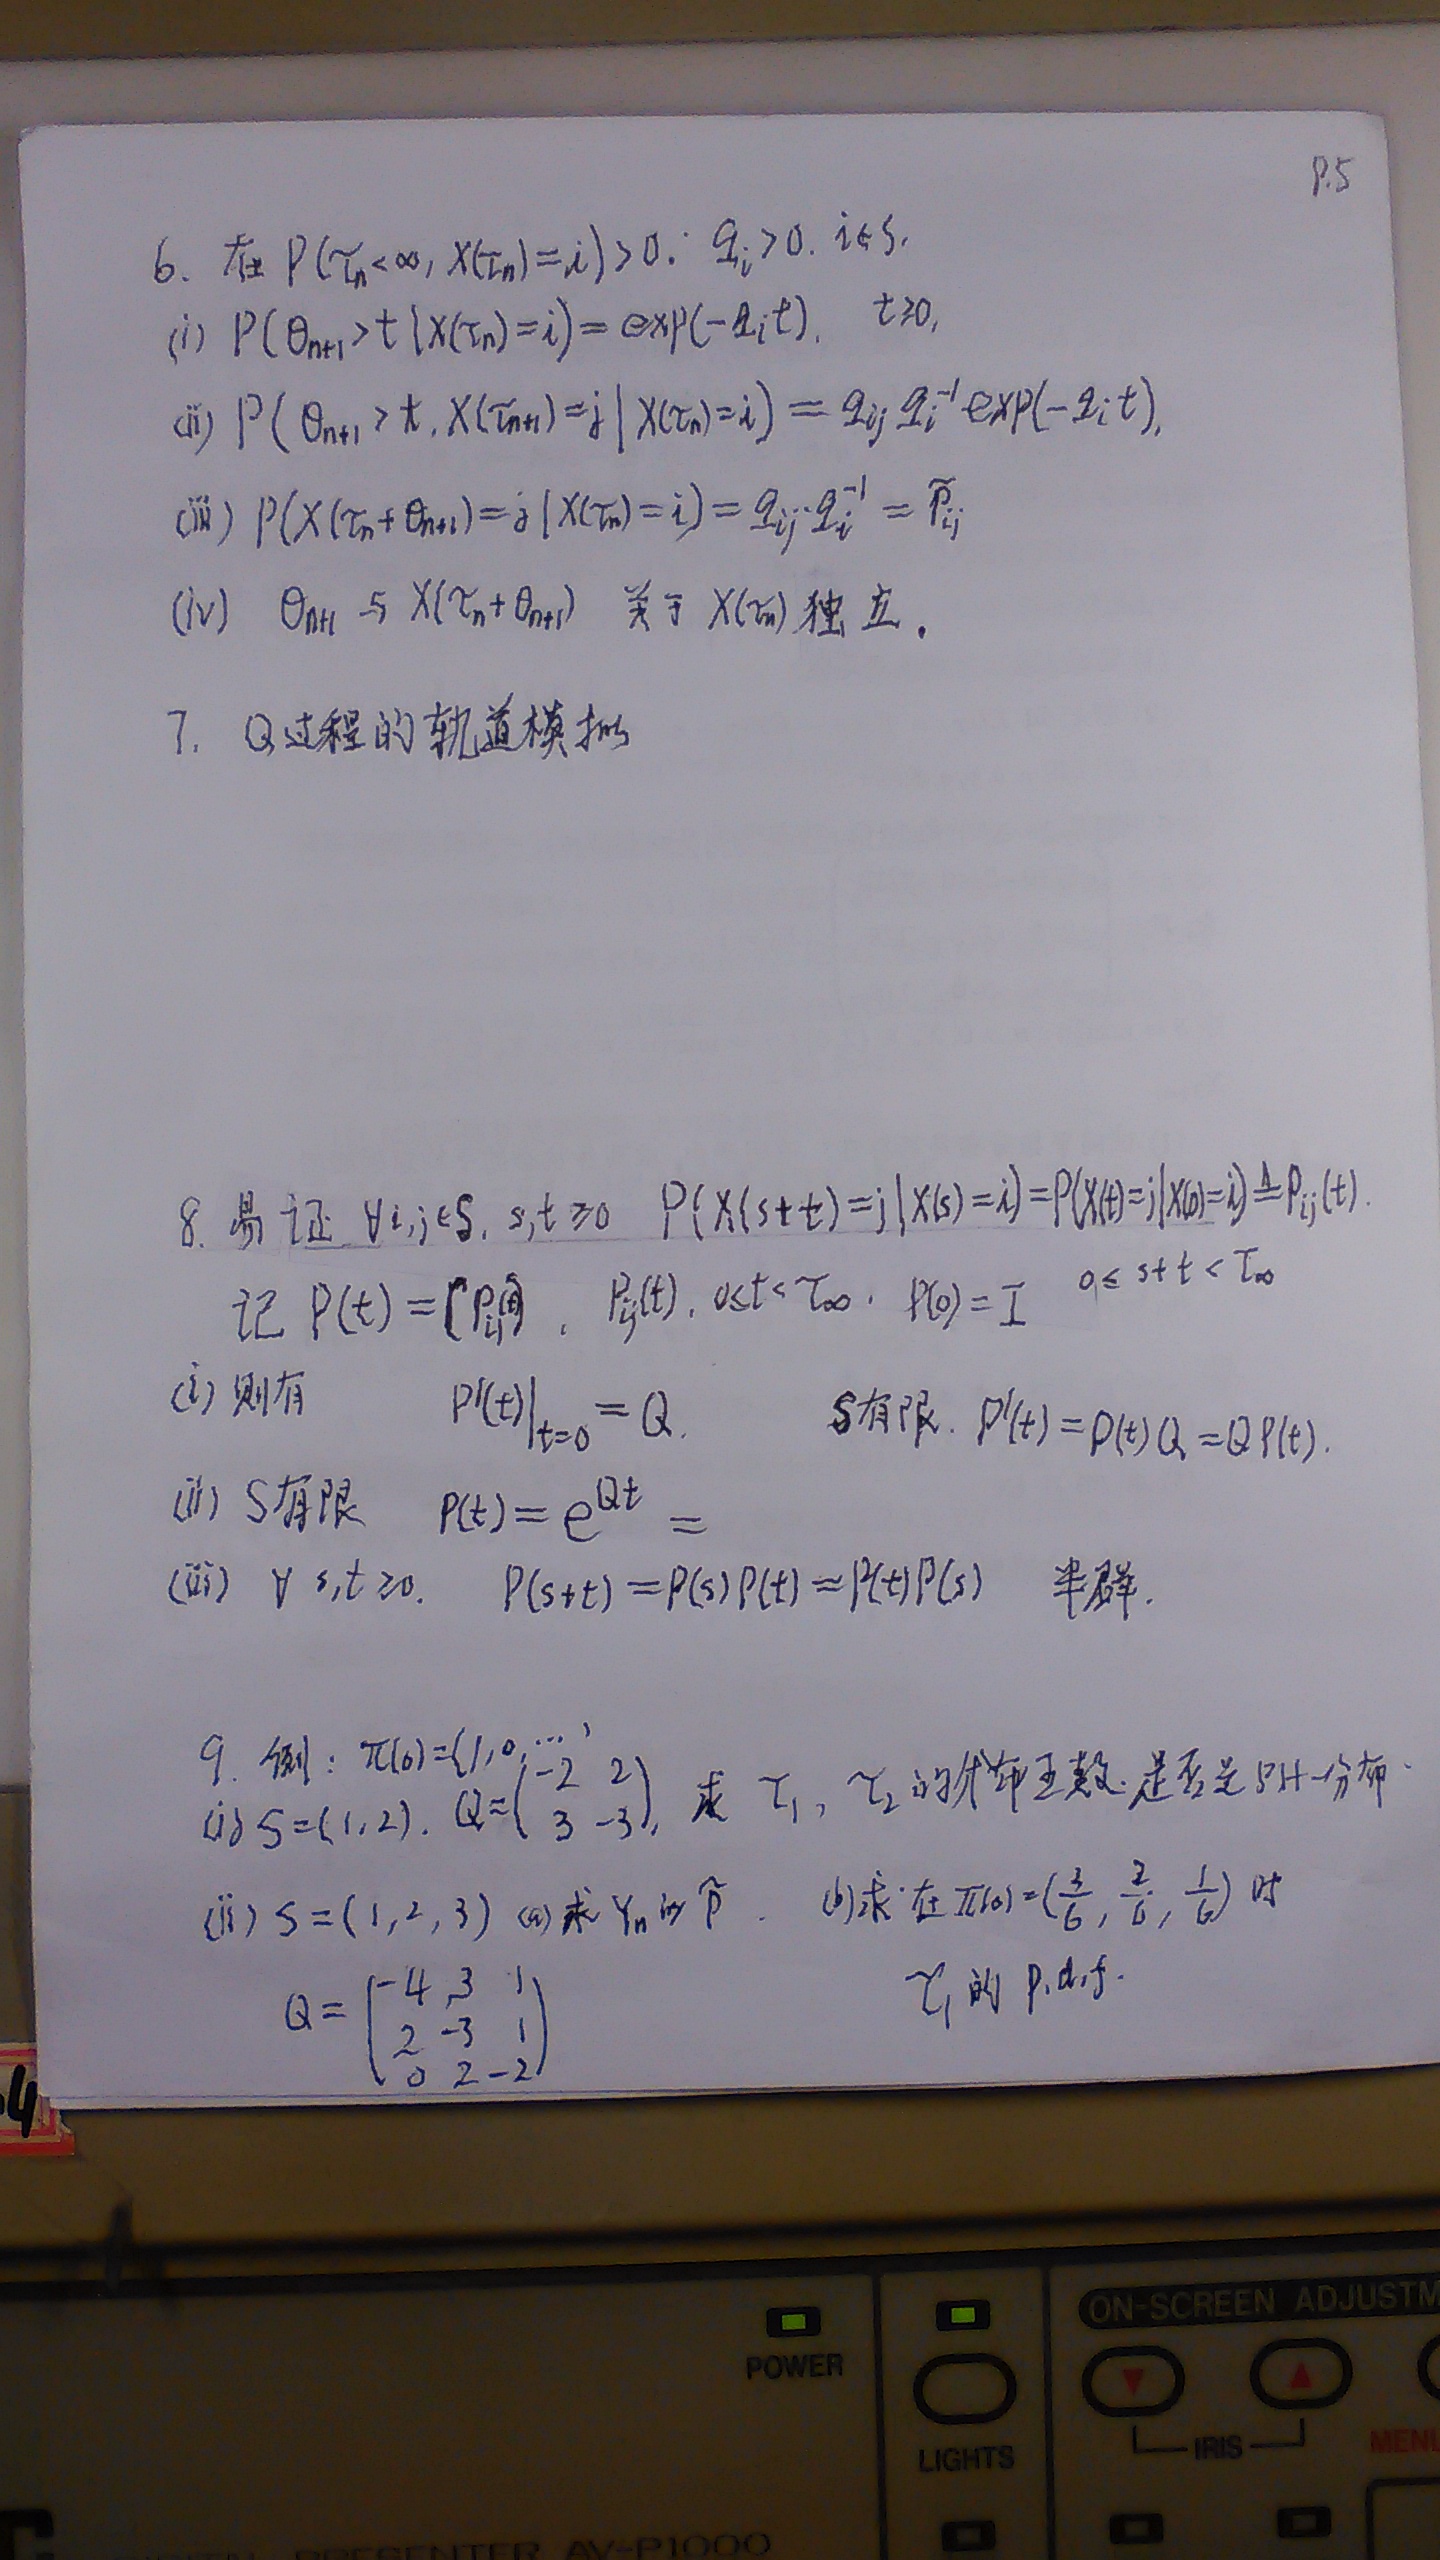 P.5
6. 在 P(τₙ<∞, X(τₙ)=i)>0. qᵢ>0. i∈S.
(i) P(θₙ₊₁>t|X(τₙ)=i)=exp(-qᵢt). t≥0,
(ii) P(θₙ₊₁>t, X(τₙ₊₁)=j|X(τₙ)=i)=qᵢⱼ qᵢ⁻¹ exp(-qᵢt).
(iii) P(X(τₙ+θₙ₊₁)=j|X(τₙ)=i)=qᵢⱼ·qᵢ⁻¹=p̃ᵢⱼ
(iv) θₙ₊₁ 与 X(τₙ+θₙ₊₁) 关于 X(τₙ) 独立.
7. Q过程的轨道模拟
8. 易证 ∀i,j∈S. s,t≥0 P(X(s+t)=j|X(s)=i)=P(X(t)=j|X(0)=i)≜Pᵢⱼ(t).
记 P(t)=(Pᵢⱼ(t)), Pᵢⱼ(t), 0≤t<τ∞. P(0)=I 0≤s+t<τ∞
(i) 则有 P'(t)|t=0=Q. S有限. P'(t)=P(t)Q=QP(t).
(ii) S有限 P(t)=e^{Qt}=
(iii) ∀ s,t≥0. P(s+t)=P(s)P(t)=P(t)P(s) 半群.
9. 例: π(0)=(1,0,...)
(i) S=(1,2). Q=(-2 2
3 -3), 求 τ₁, τ₂的 是否是PH-分布.
(ii) S=(1,2,3) (a)求Yₙ的P̃. (b)求在π(0)=(3/6, 2/6, 1/6)时
τ₁的 p.d.f.
Q=(-4, 3 1
2 -3 1
0 2 -2)
4
POWER
LIGHTS
ON-SCREEN ADJUSTM
IRIS
MENU
PRESENTER AV-P1000